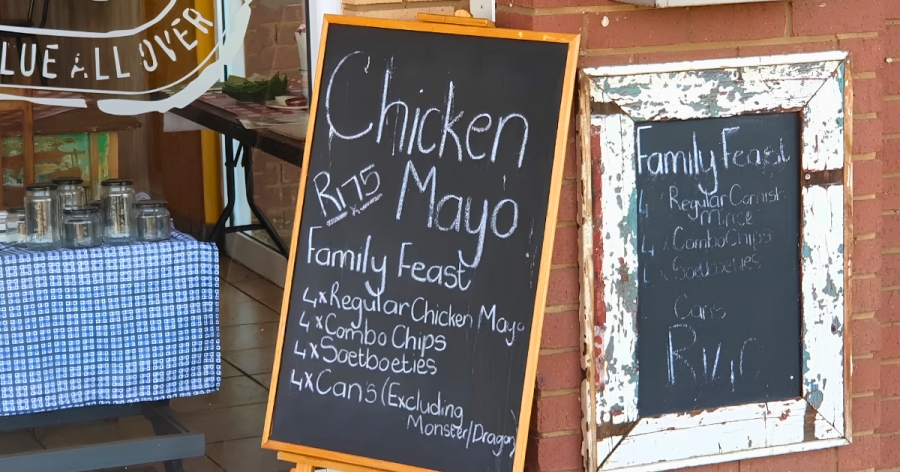 LUE ALL OVER
Chicken
R175 Mayo
Family Feast
4xRegular Chicken Mayo
4xCombo Chips
4xSoetboeties
4xCan's (Excluding
Monster/Dragon)
Family Feast
4 Regular Cornish
Mince
4 x Combo Chips
4 Soetboeties
Cans